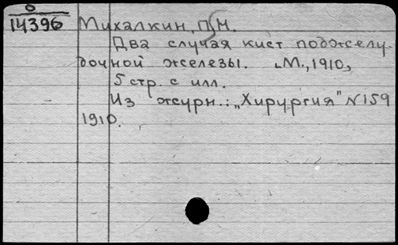 0
14396 Михалкин, П.Н.
Два случая кист поджелу-
дочной железы. М., 1910,
5 стр. с илл.
Из журн.: „Хирургия" N159
1910.